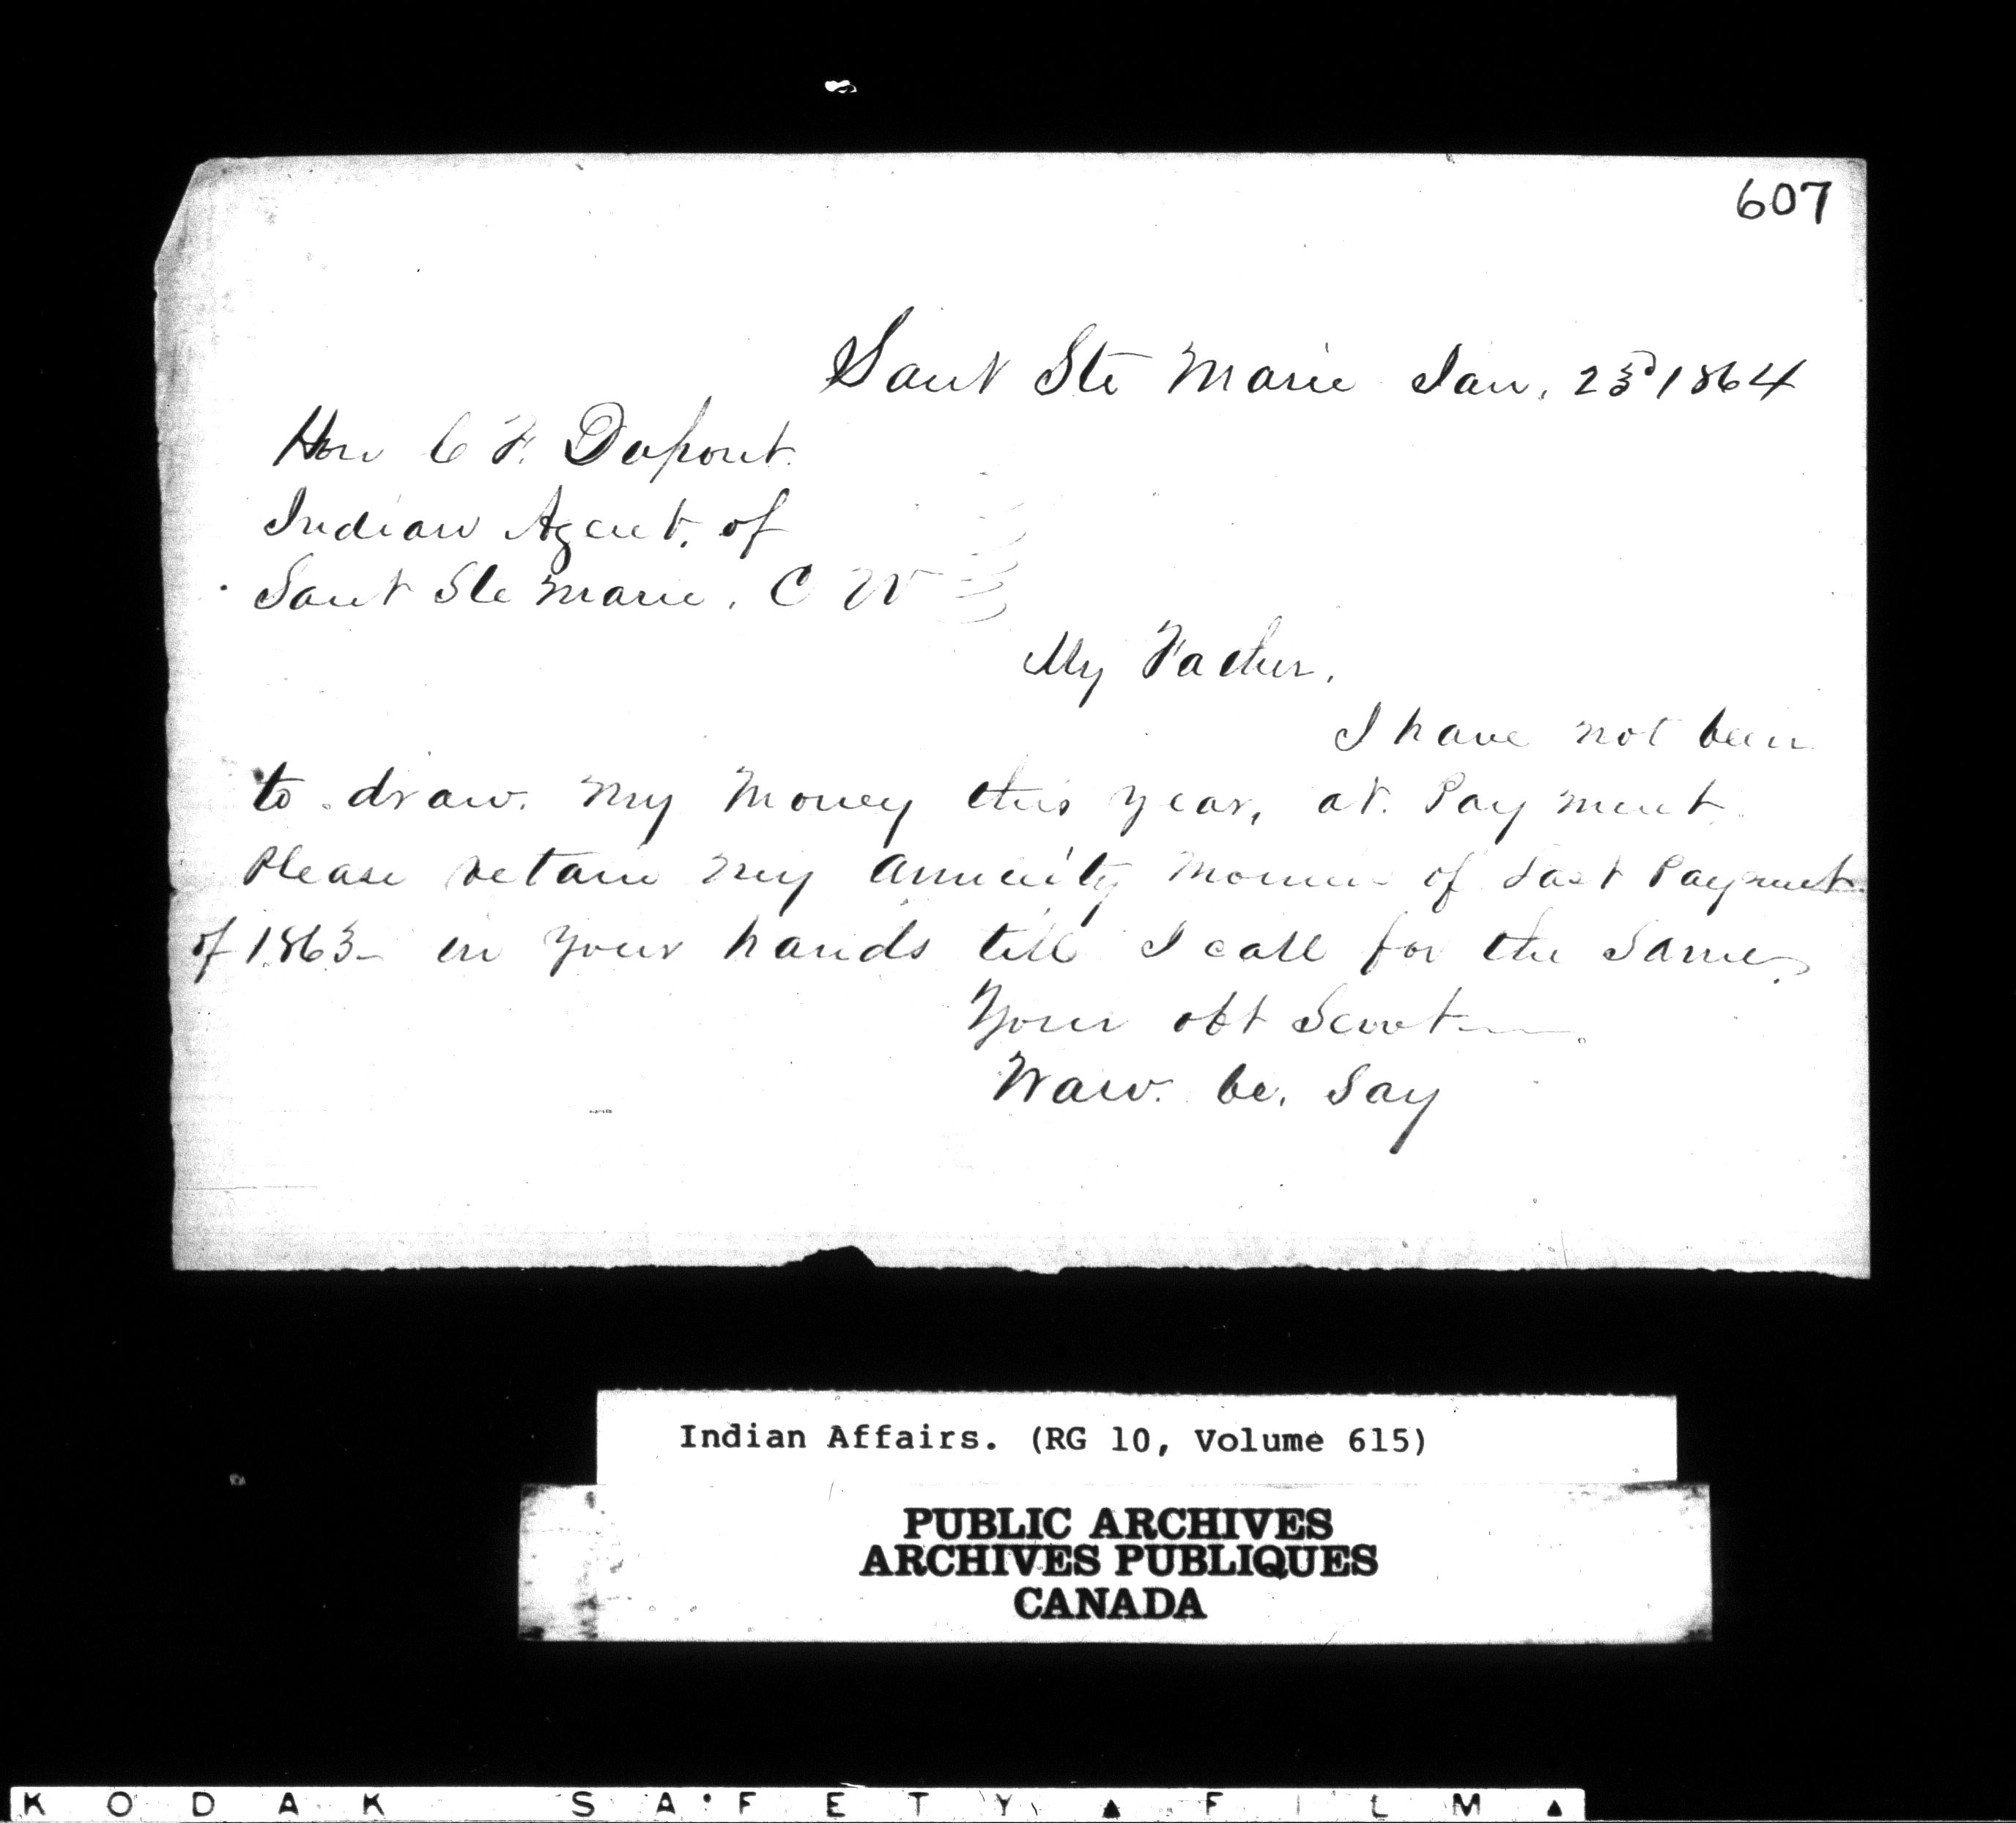 607
Saut Ste Marie Jan. 23d 1864
Hon C F. Dupont.
Indian Agent. of
Saut Ste Marie. C W
My Father.
I have not been
to draw. my money this year, at. Pay ment.
Please retain my annuity of Last Payment
of 1863 - in your hands till I call for the Same.
Your obt Servt
Waw. be. Say
Indian Affairs. (RG 10, Volume 615)
PUBLIC ARCHIVES
ARCHIVES PUBLIQUES
CANADA
KODAK SAFETY FILM